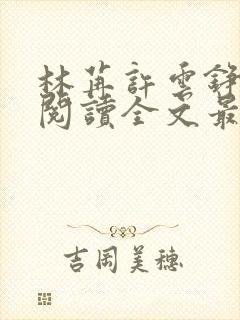 林苒許雲錚
閱讀全文最
吉岡美穗